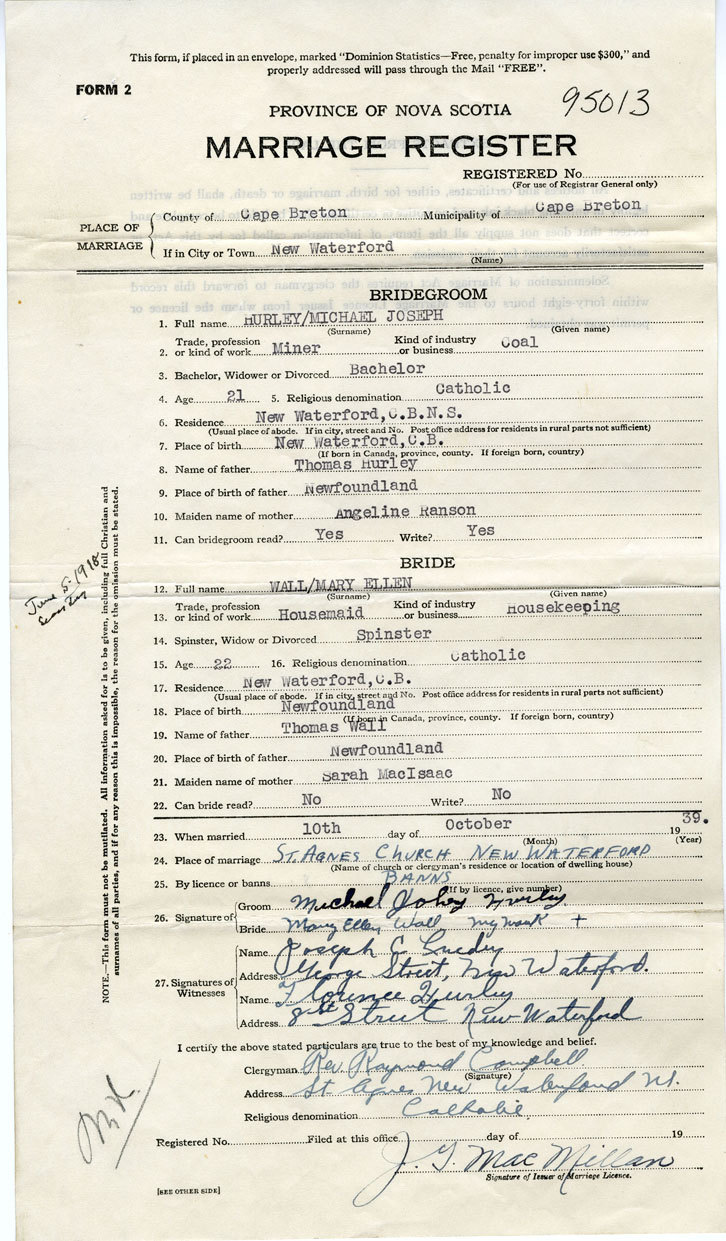 This form, if placed in an envelope, marked "Dominion Statistics—Free, penalty for improper use $300," and
properly addressed will pass through the Mail "FREE".
FORM 2
95013
PROVINCE OF NOVA SCOTIA
MARRIAGE REGISTER
REGISTERED No.
(For use of Registrar General only)
PLACE OF MARRIAGE
County of Cape Breton Municipality of Cape Breton
If in City or Town New Waterford
(Name)
BRIDEGROOM
1. Full name HURLEY/MICHAEL JOSEPH
(Surname) (Given name)
2. Trade, profession or kind of work Miner Kind of industry or business Coal
3. Bachelor, Widower or Divorced Bachelor
4. Age 21 5. Religious denomination Catholic
6. Residence New Waterford,C.B.N.S.
(Usual place of abode. If in city, street and No. Post office address for residents in rural parts not sufficient)
7. Place of birth New Waterford,C.B.
(If born in Canada, province, county. If foreign born, country)
8. Name of father Thomas Hurley
9. Place of birth of father Newfoundland
10. Maiden name of mother Angeline Ranson
11. Can bridegroom read? Yes Write? Yes
BRIDE
12. Full name WALL/MARY ELLEN
(Surname) (Given name)
13. Trade, profession or kind of work Housemaid Kind of industry or business Housekeeping
14. Spinster, Widow or Divorced Spinster
15. Age 22 16. Religious denomination Catholic
17. Residence New Waterford,C.B.
(Usual place of abode. If in city, street and No. Post office address for residents in rural parts not sufficient)
18. Place of birth Newfoundland
(If born in Canada, province, county. If foreign born, country)
19. Name of father Thomas Wall
20. Place of birth of father Newfoundland
21. Maiden name of mother Sarah MacIsaac
22. Can bride read? No Write? No
23. When married 10th day of October 19 39.
(Month) (Year)
24. Place of marriage ST. AGNES CHURCH NEW WATERFORD
(Name of church or clergyman's residence or location of dwelling house)
25. By licence or banns BANNS
(If by licence, give number)
26. Signature of
Groom Michael Hurley
Bride Mary Ellen Wall my mark +
27. Signatures of Witnesses
Name Joseph
Address George Street, New Waterford.
Name Florence Hurley
Address 8th Street New Waterford
I certify the above stated particulars are true to the best of my knowledge and belief.
Clergyman Rev Raymond Campbell
(Signature)
Address St Agnes New Waterford
Religious denomination Catholic
Registered No. Filed at this office day of 19
J. G. MacMillan
Signature of Issuer of Marriage Licence.
[SEE OTHER SIDE]
NOTE.—This form must not be mutilated. All information asked for is to be given, including full Christian and
surnames of all parties, and if for any reason this is impossible, the reason for the omission must be stated.
June 5-1918